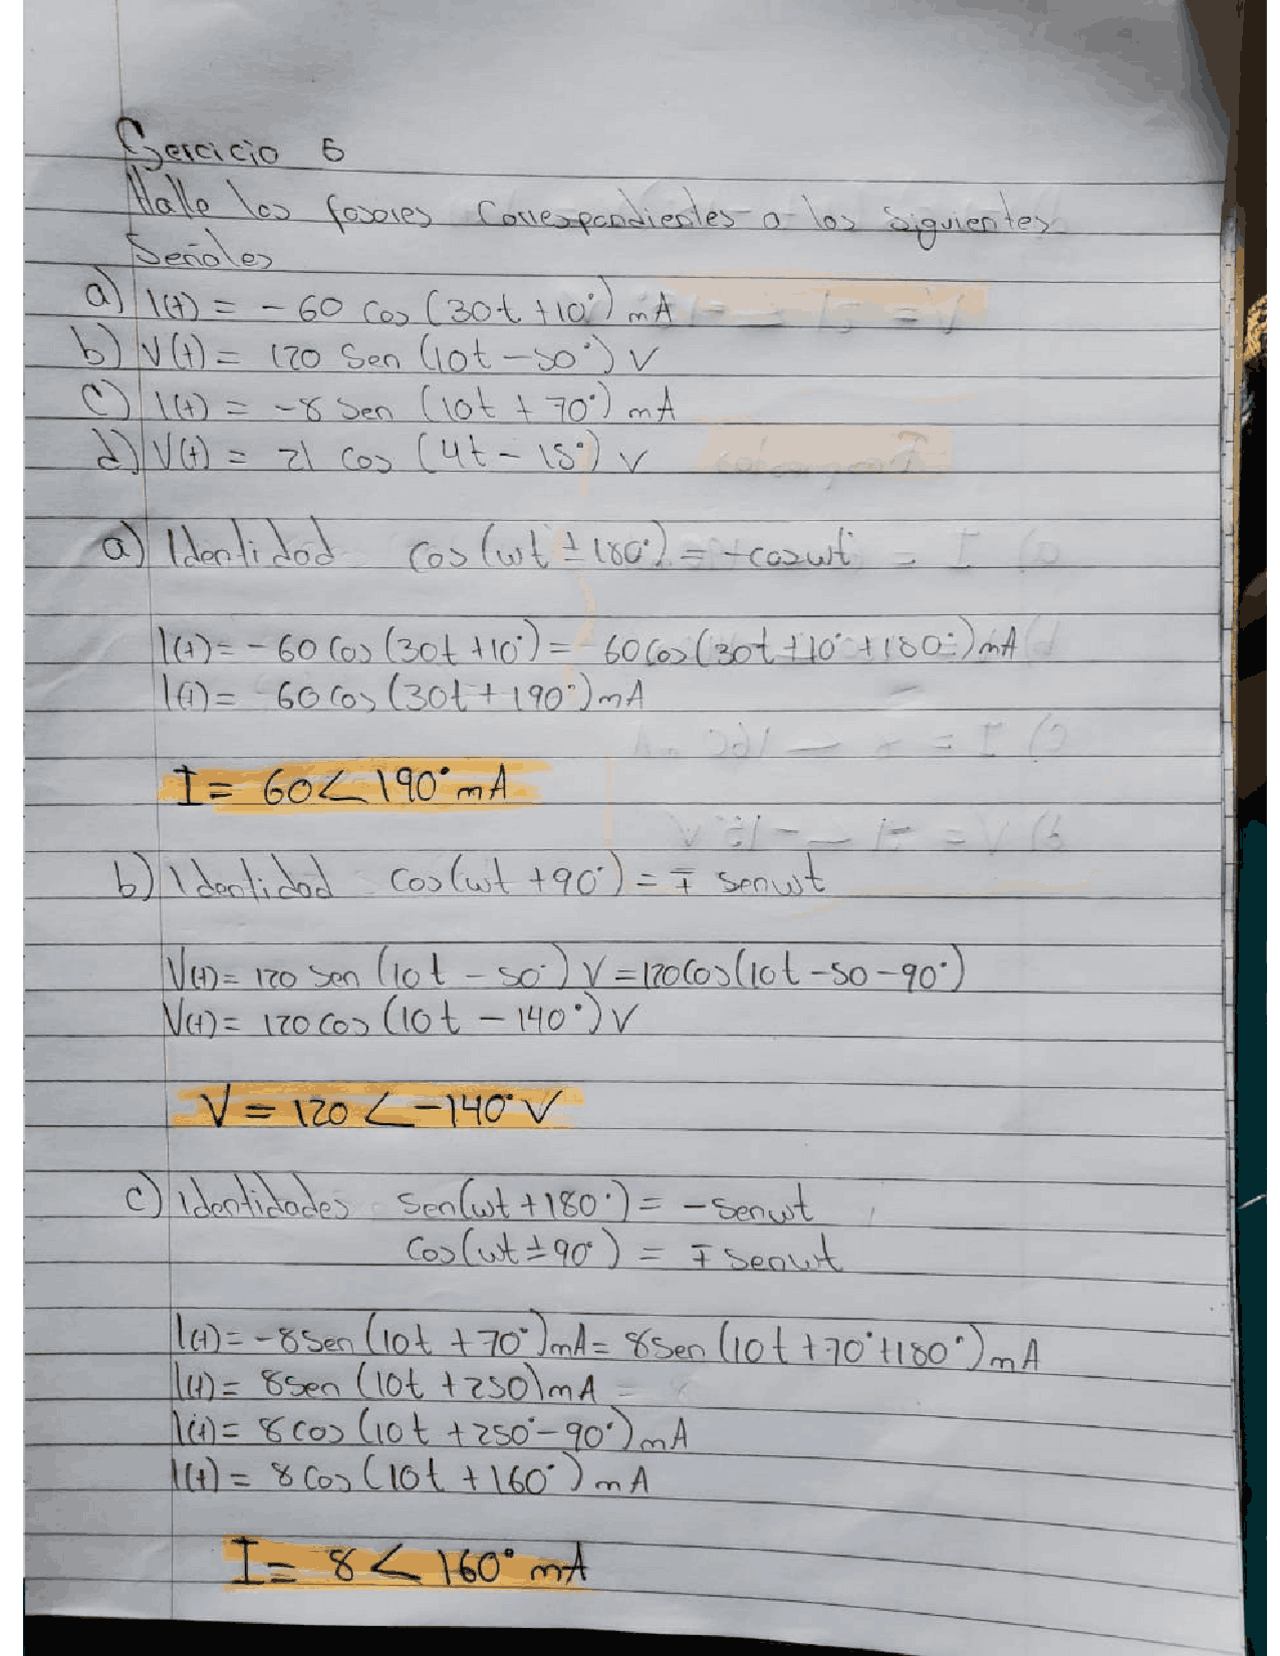 Ejercicio 6
Halle los fasores correspondientes a los siguientes
Señales
a) I(t) = - 60 Cos (30t +10°) mA
b) V(t) = 120 Sen (10t -50°) V
c) I(t) = -8 Sen (10t + 70°) mA
d) V(t) = 21 Cos (4t - 15°) V
a) Identidad Cos (wt ± 180°) = -coswt
I(t) = - 60 Cos (30t +10°) = 60 Cos (30t +10° +180°) mA
I(t) = 60 Cos (30t + 190°) mA
I = 60 < 190° mA
b) Identidad Cos (wt +90°) = ∓ senwt
V(t) = 120 Sen (10t - 50°) V = 120 Cos (10t -50 -90°)
V(t) = 120 Cos (10t - 140°) V
V = 120 < -140° V
c) Identidades Sen (wt +180°) = - Senwt
Cos (wt ±90°) = ∓ Senwt
I(t) = -8 Sen (10t +70°) mA = 8 Sen (10t +70° +180°) mA
I(t) = 8 Sen (10t +250) mA
I(t) = 8 Cos (10t +250° - 90°) mA
I(t) = 8 Cos (10t + 160°) mA
I = 8 < 160° mA